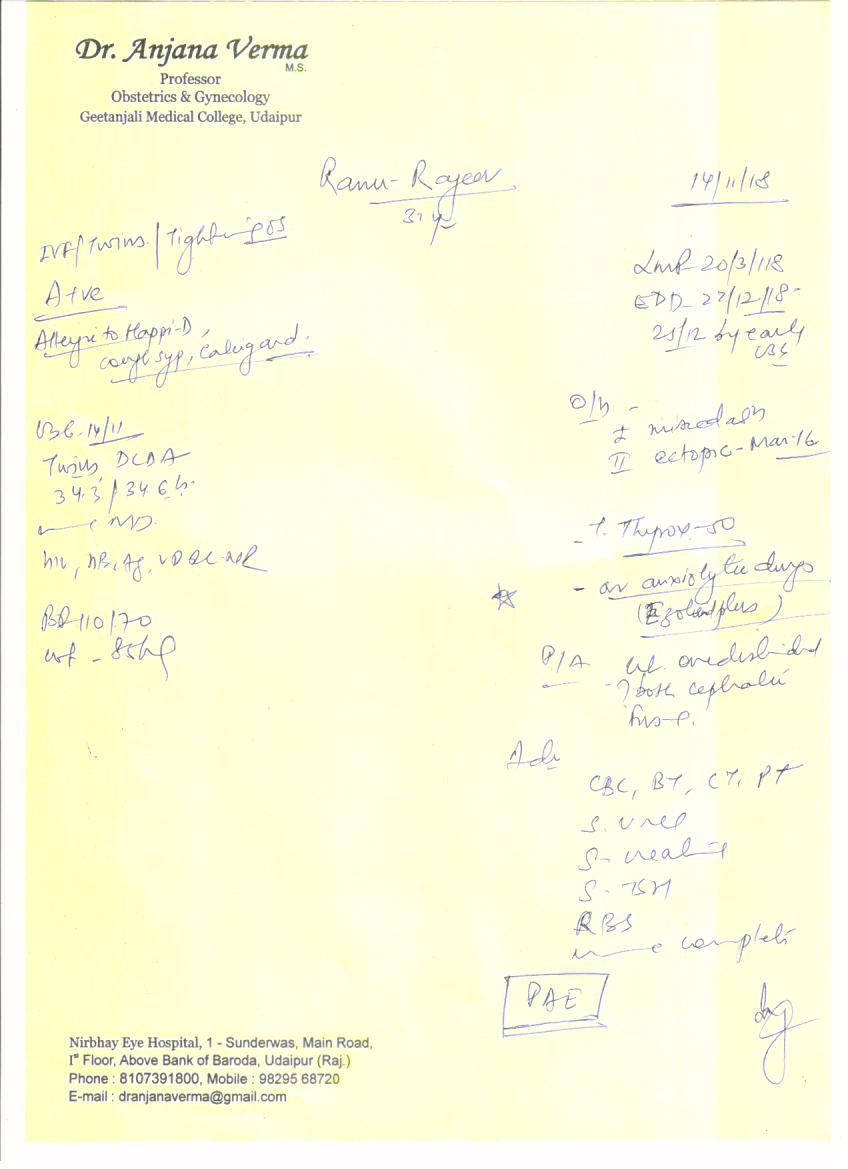 Dr. Anjana Verma
M.S.
Professor
Obstetrics & Gynecology
Geetanjali Medical College, Udaipur
Ranu- Rajeev
14/11/18
31 y
IVF/Twins/
A+ve
Allergic to Happi-D,
cough syp,
LMP 20/3/118
EDD- 27/12/18-
25/12 by early
USG
USG 14/11
Twins DCDA
34.3 / 34.6
HIV, HB, Ag, VDRL-NR
BP-110/70
wt - 85kg
O/H -
I missed ab
II ectopic- Mar-16
- T. Thyrox-50
- on anxiolytic drugs
P/A Ut. overdistended
? both cephalic
FHS-P.
Adv
CBC, BT, CT, PT
S. Urea
S- creatinine
S- TSH
RBS
complete
PAE
Nirbhay Eye Hospital, 1 - Sunderwas, Main Road,
Ist Floor, Above Bank of Baroda, Udaipur (Raj.)
Phone : 8107391800, Mobile : 98295 68720
E-mail : dranjanaverma@gmail.com